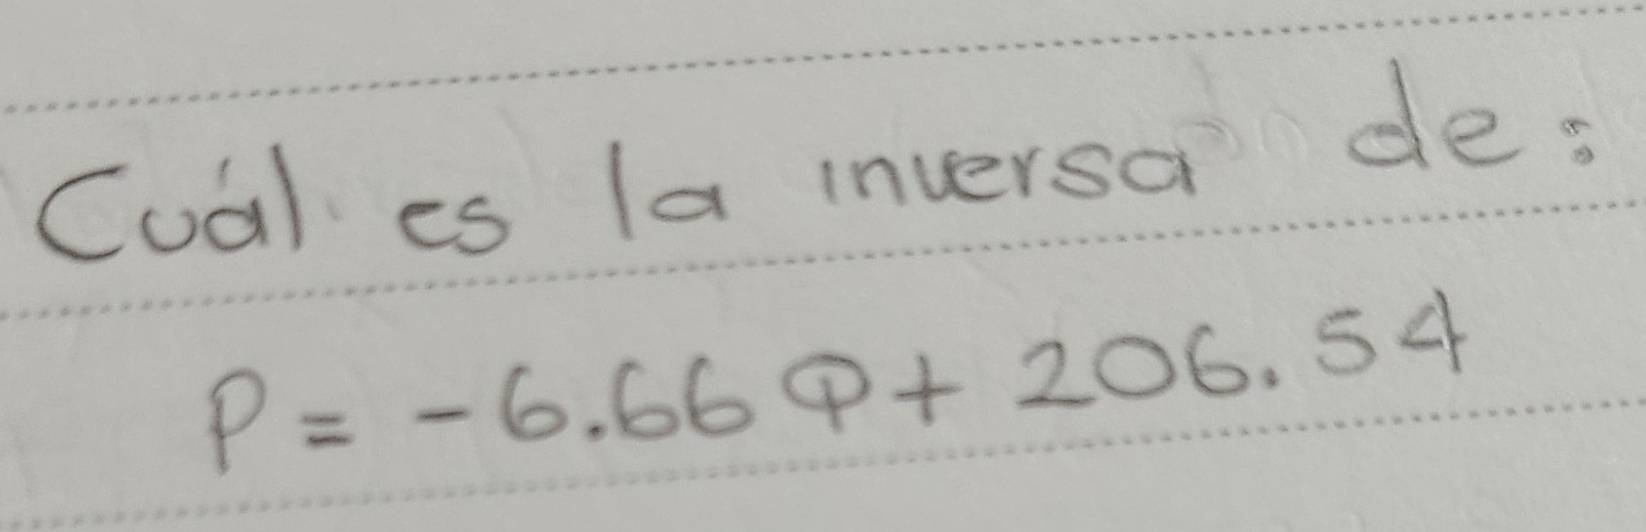 Cuál es la inversa de:
P = -6.66 Q + 206.54